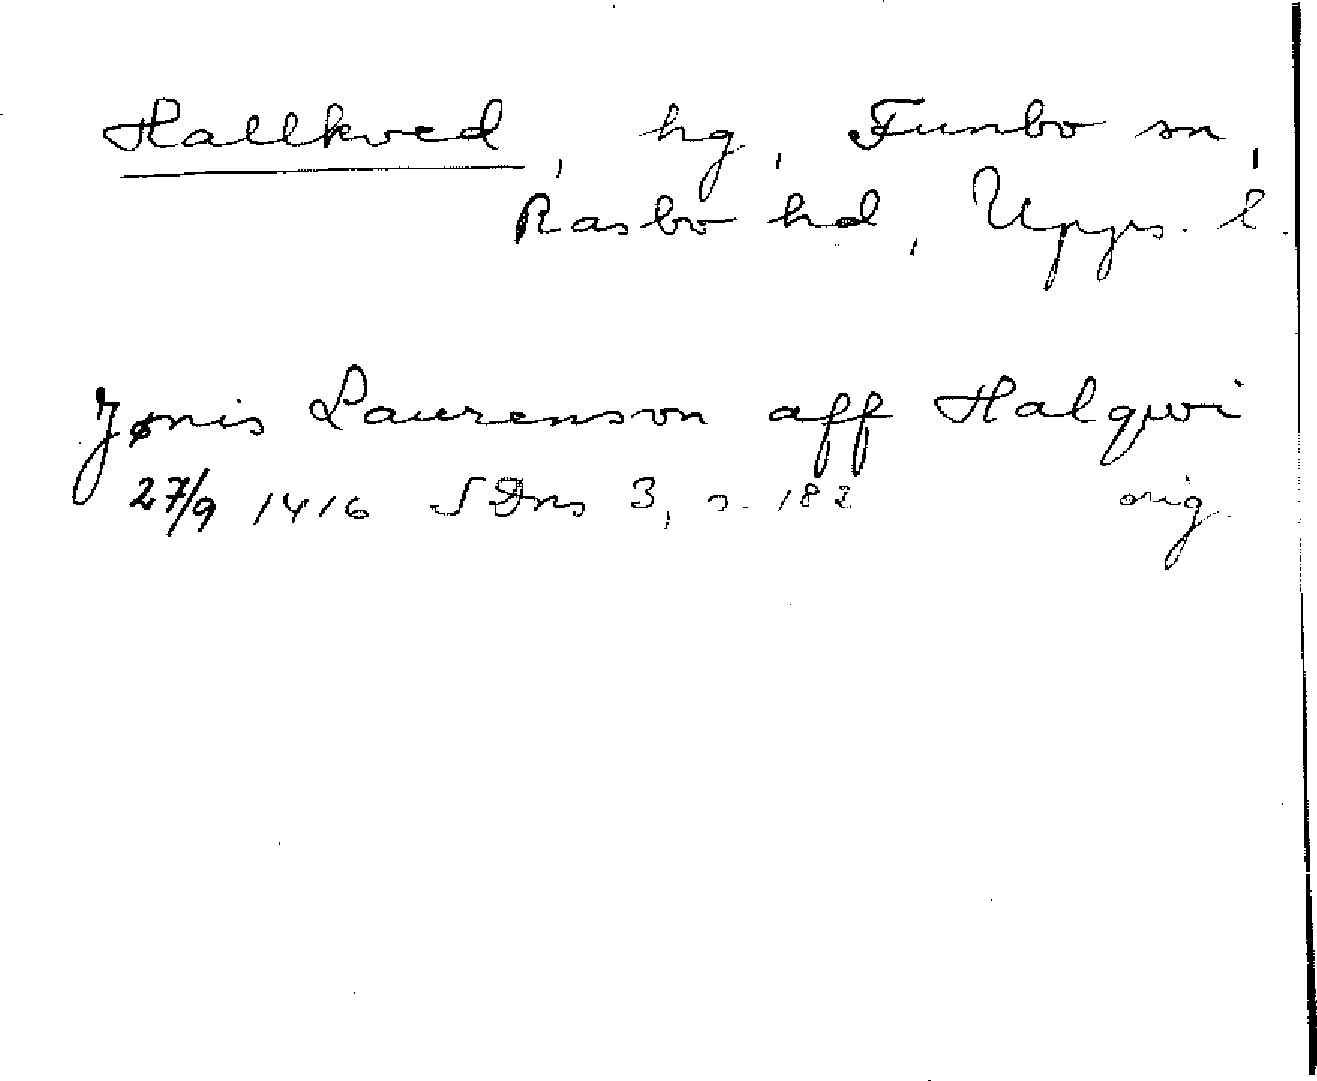 Hallkved, hg, Funbo sn,
Rasbo hd, Upps. l.
Jønis Laurensson aff Halqwi
27/9 1416 SDns 3, s. 182 orig.